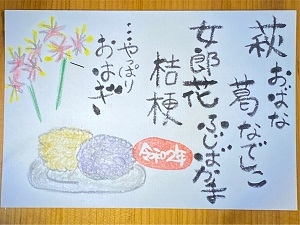 萩おばな
葛なでしこ
女郎花ふじばかま
桔梗
…やっぱり
おはぎ
令和2年